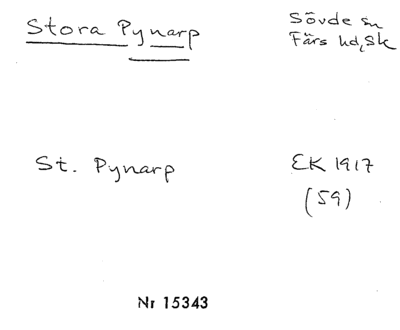 Stora Pynarp
Sövde sn
Färs hd, Sk
St. Pynarp
EK 1917
(59)
Nr 15343